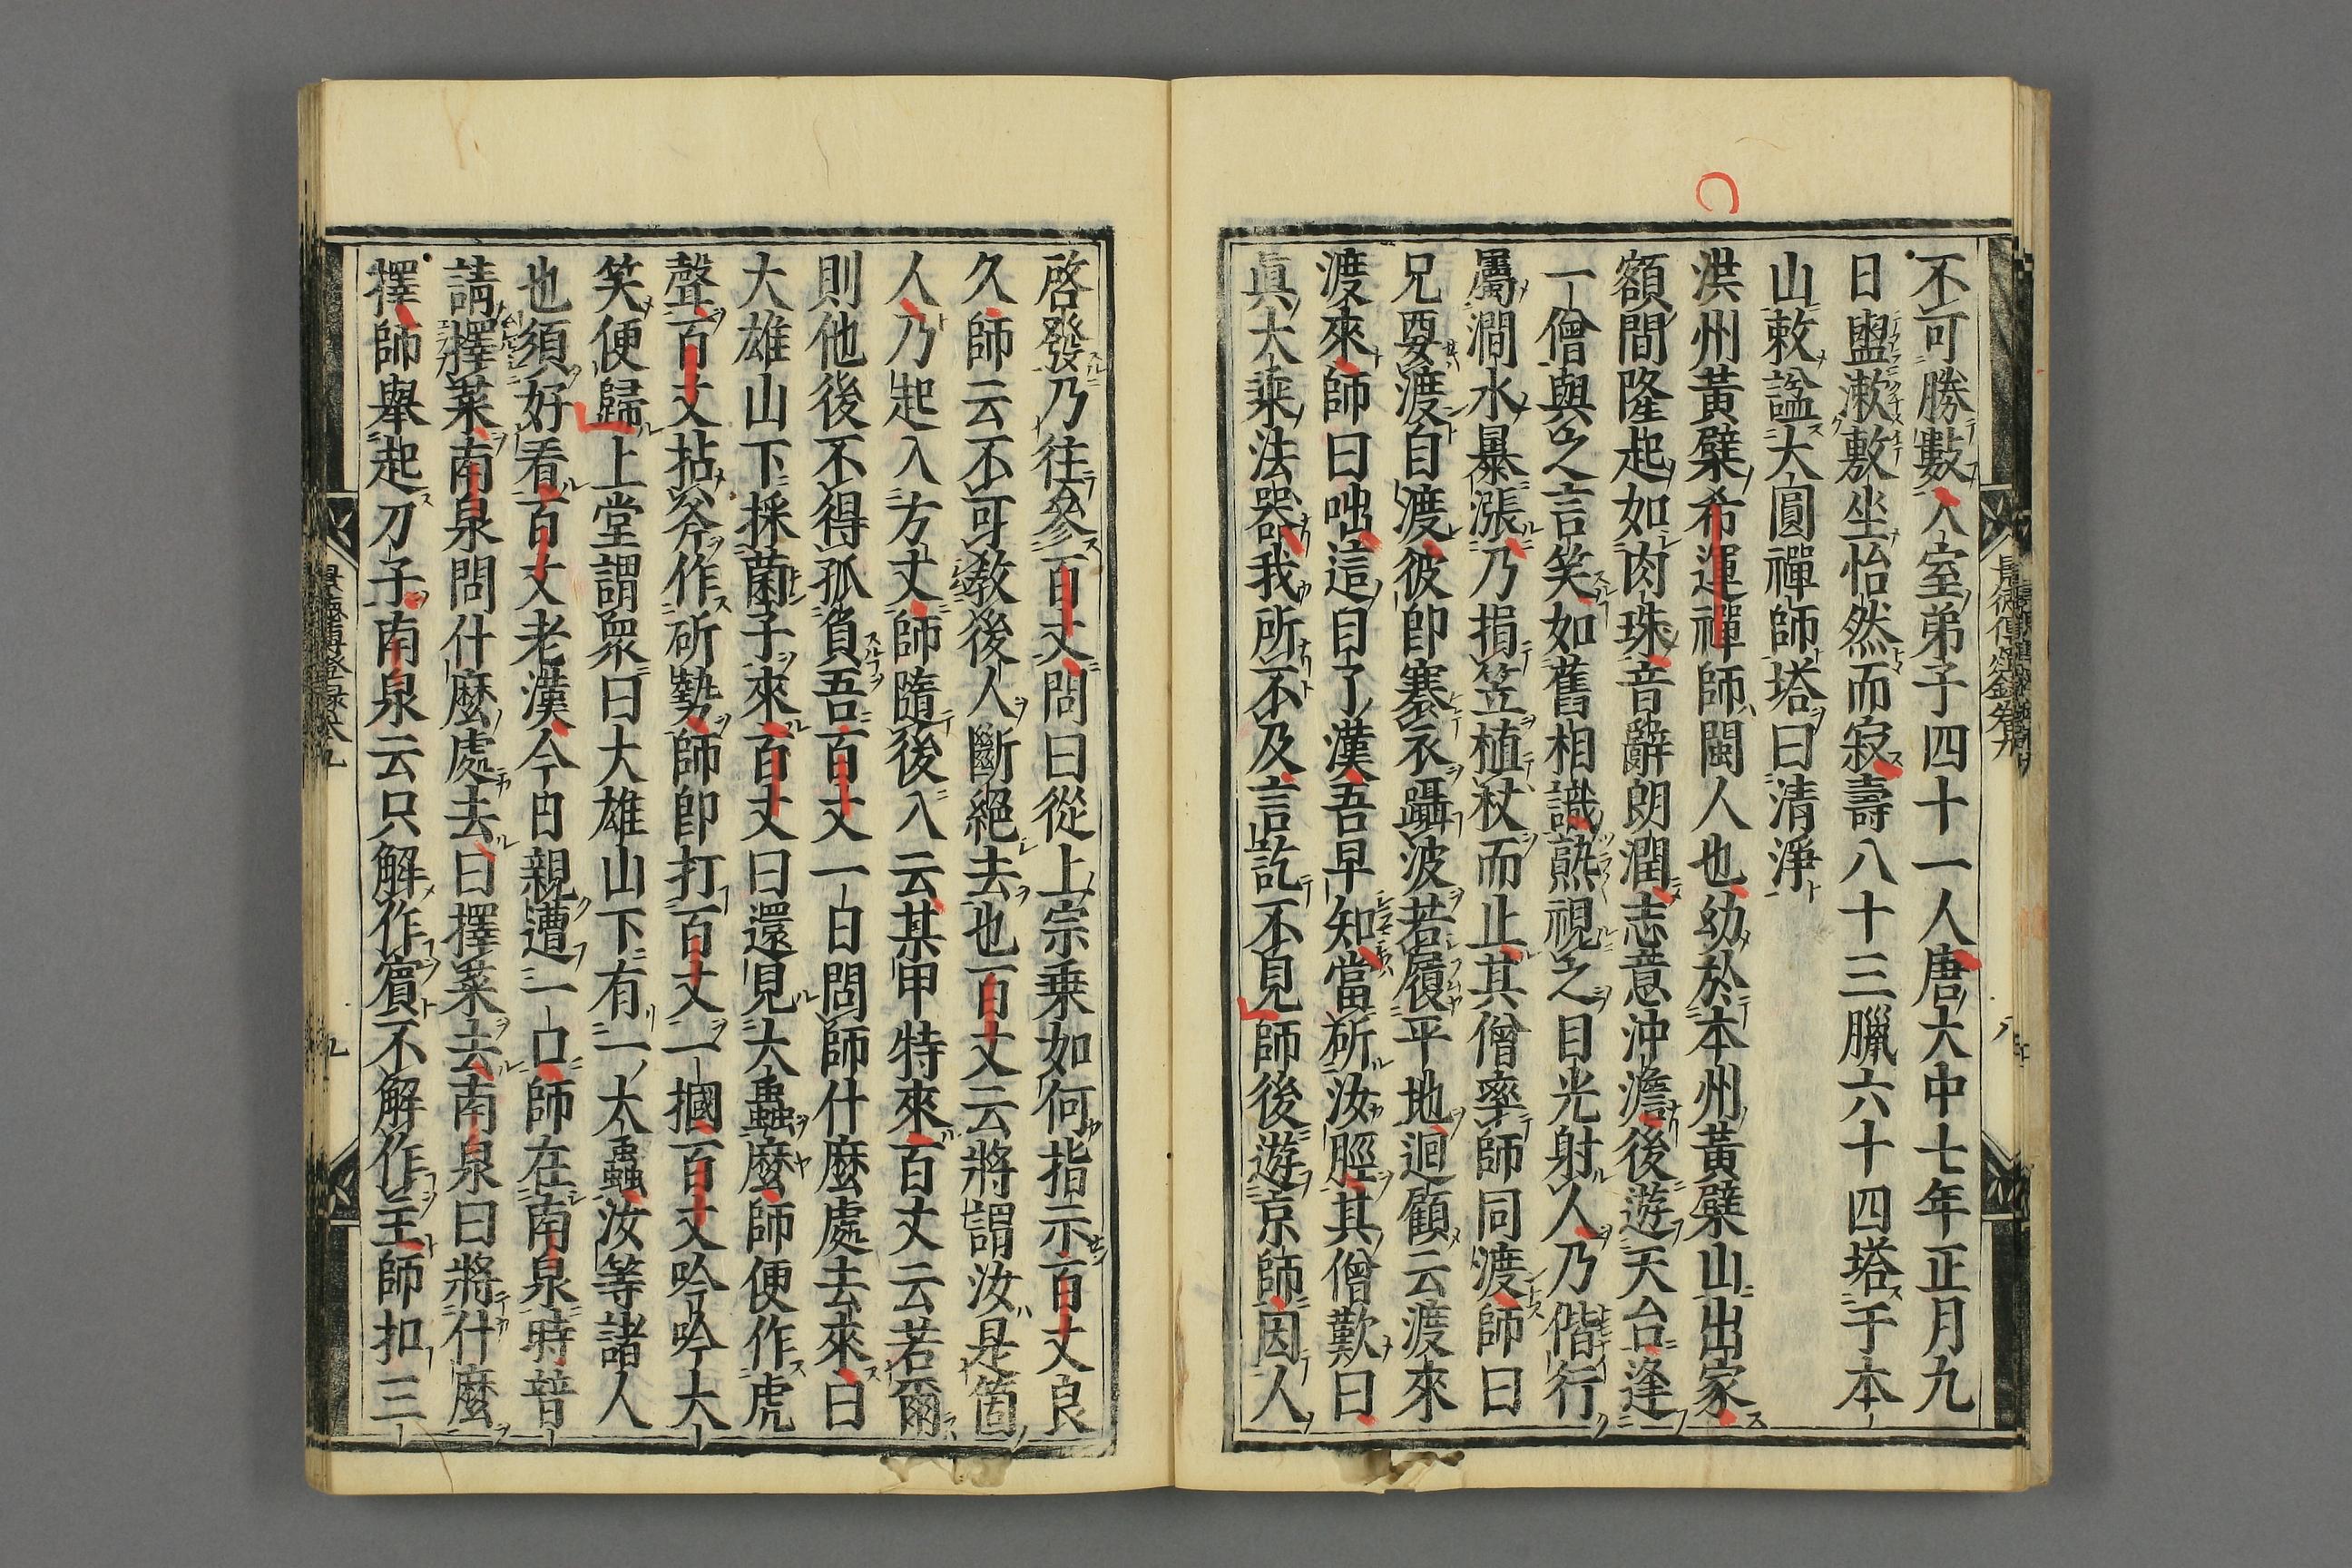 不可勝數入室弟子四十一人唐大中七年正月九
日盥漱敷坐怡然而寂壽八十三臘六十四塔于本
山敕謚大圓禪師塔曰清淨
洪州黃檗希運禪師閩人也幼於本州黃檗山出家
額間隆起如肉珠音辭朗潤志意沖澹後遊天台逢
一僧與之言笑如舊相識熟視之目光射人乃偕行
屬澗水暴漲乃捐笠植杖而止其僧率師同渡師曰
兄要渡自渡彼即褰衣躡波若履平地迴顧云渡來
渡來師曰咄這自了漢吾早知當斫汝脛其僧歎曰
真大乘法器我所不及言訖不見師後遊京師因人
啓發乃往參百丈問曰從上宗乘如何指示百丈良
久師云不可教後人斷絕去也百丈云將謂汝是箇
人乃起入方丈師隨後入云某甲特來百丈云若爾
則他後不得孤負吾百丈一日問師什麼處去來曰
大雄山下採菌子來百丈曰還見大蟲麼師便作虎
聲百丈拈斧作斫勢師即打百丈一摑百丈吟吟大
笑便歸上堂謂眾曰大雄山下有一大蟲汝等諸人
也須好看百丈老漢今日親遭一口師在南泉時普
請擇菜南泉問什麼處去曰擇菜去南泉曰將什麼
擇師舉起刀子南泉云只解作賓不解作主師扣三